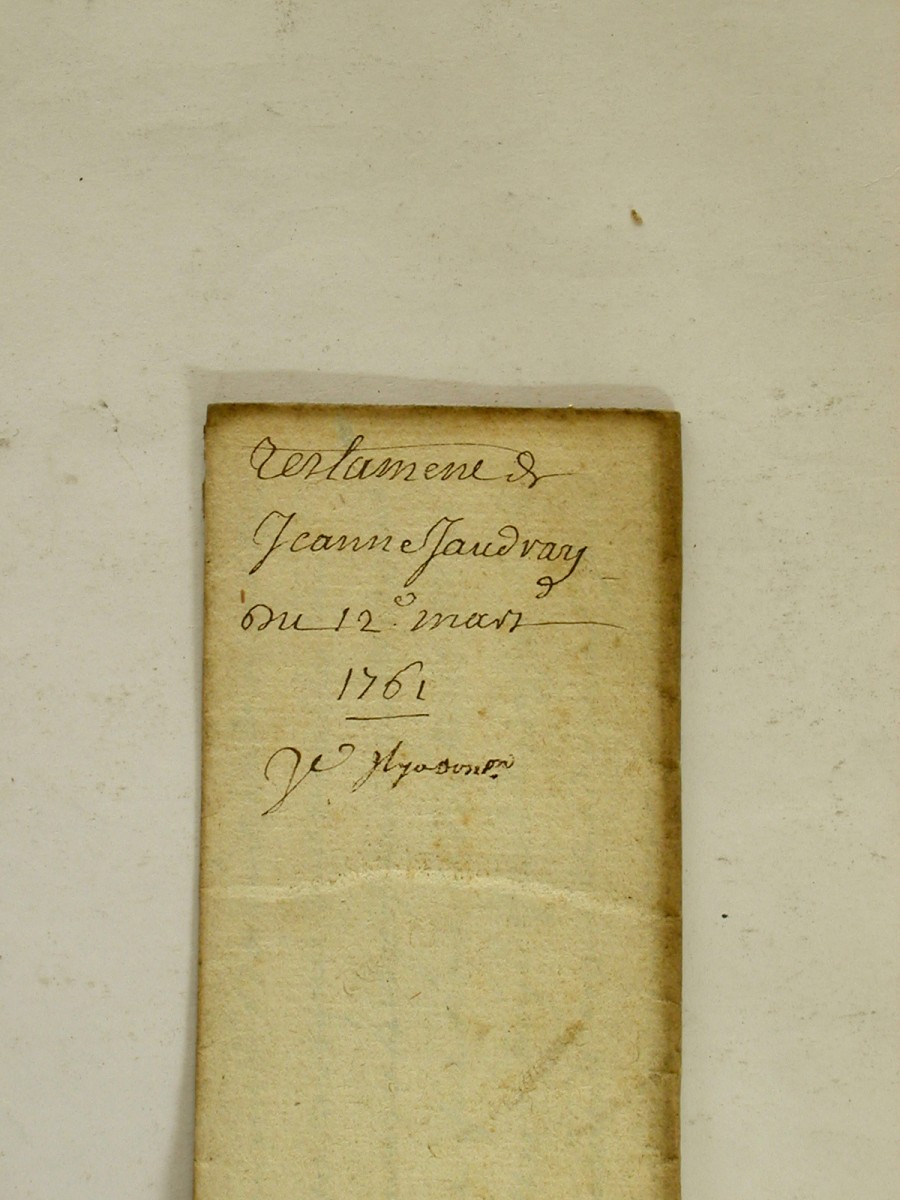 Testament de
Jeanne Jaudray
Du 12e mars
1761